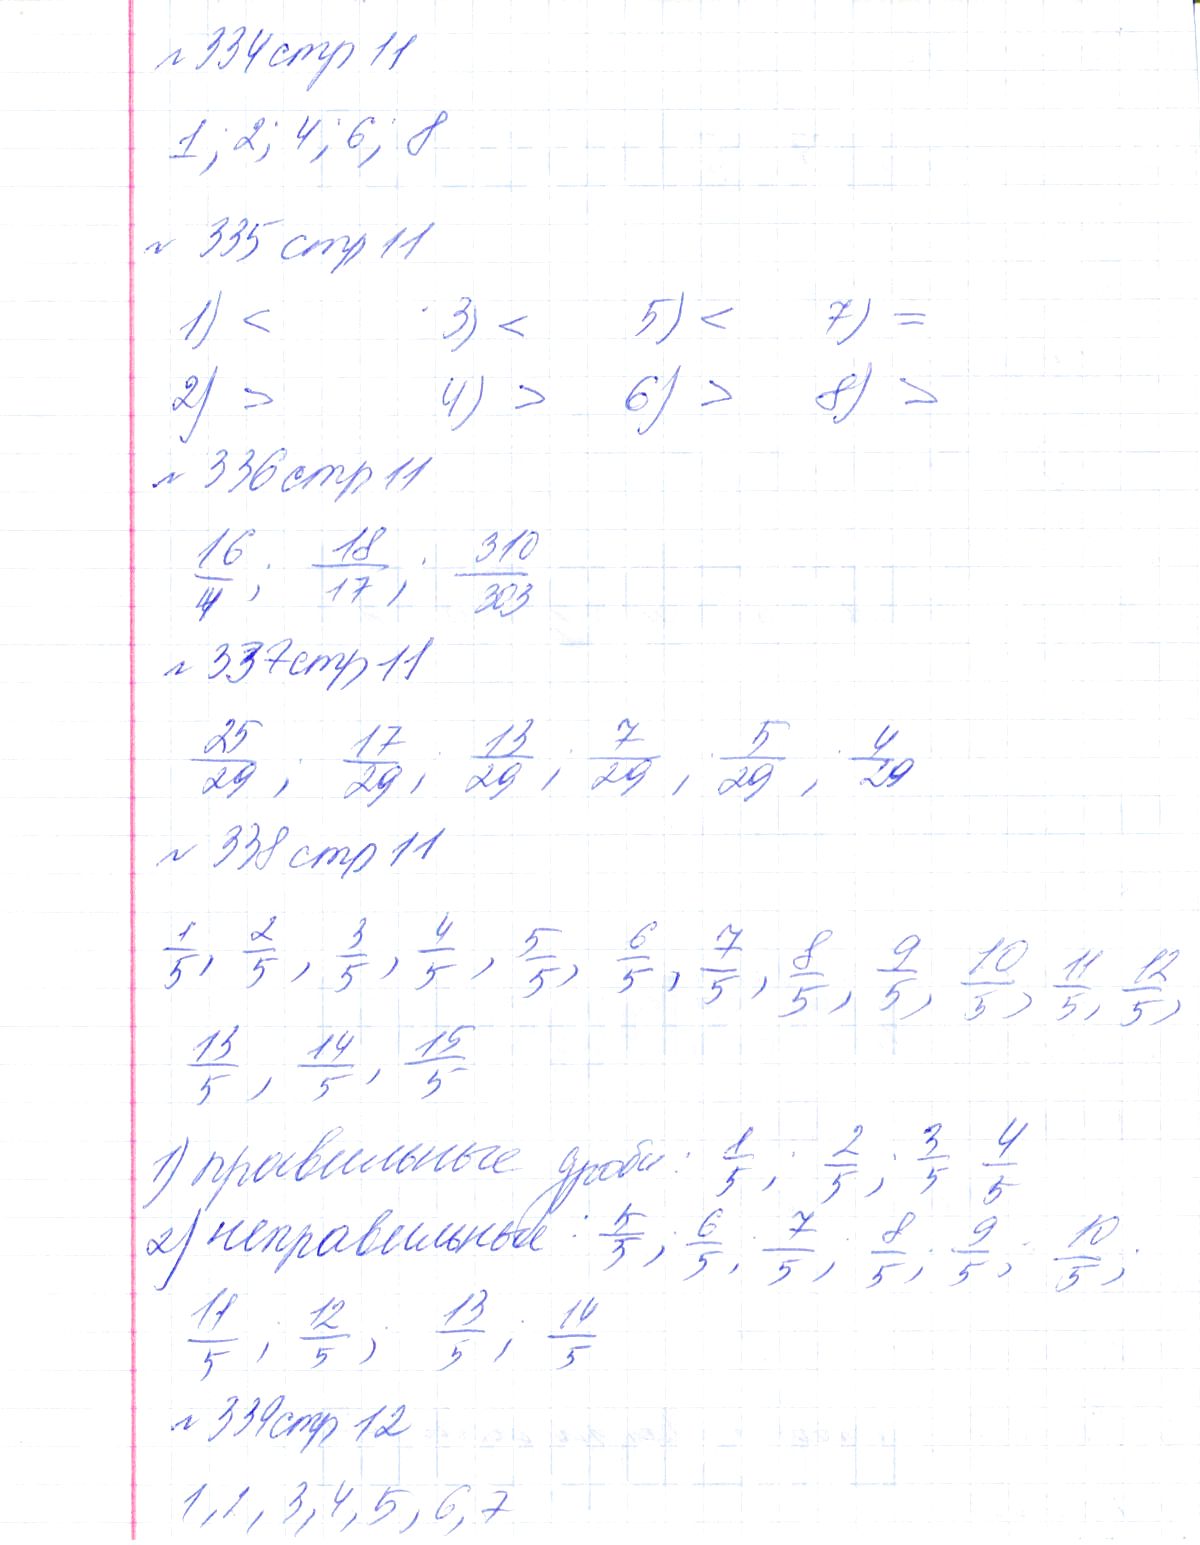 № 334 стр 11
1; 2; 4; 6; 8
№ 335 стр 11
1) < 3) < 5) < 7) =
2) > 4) > 6) > 8) >
№ 336 стр 11
16/4; 18/17; 310/303
№ 337 стр 11
25/29; 17/29; 13/29; 7/29; 5/29; 4/29
№ 338 стр 11
1/5, 2/5, 3/5, 4/5, 5/5, 6/5, 7/5, 8/5, 9/5, 10/5, 11/5, 12/5,
13/5, 14/5, 15/5
1) правильные дроби: 1/5; 2/5; 3/5 4/5
2) неправильные: 5/5; 6/5; 7/5; 8/5; 9/5; 10/5;
11/5; 12/5; 13/5; 14/5
№ 339 стр 12
1, 2, 3, 4, 5, 6, 7